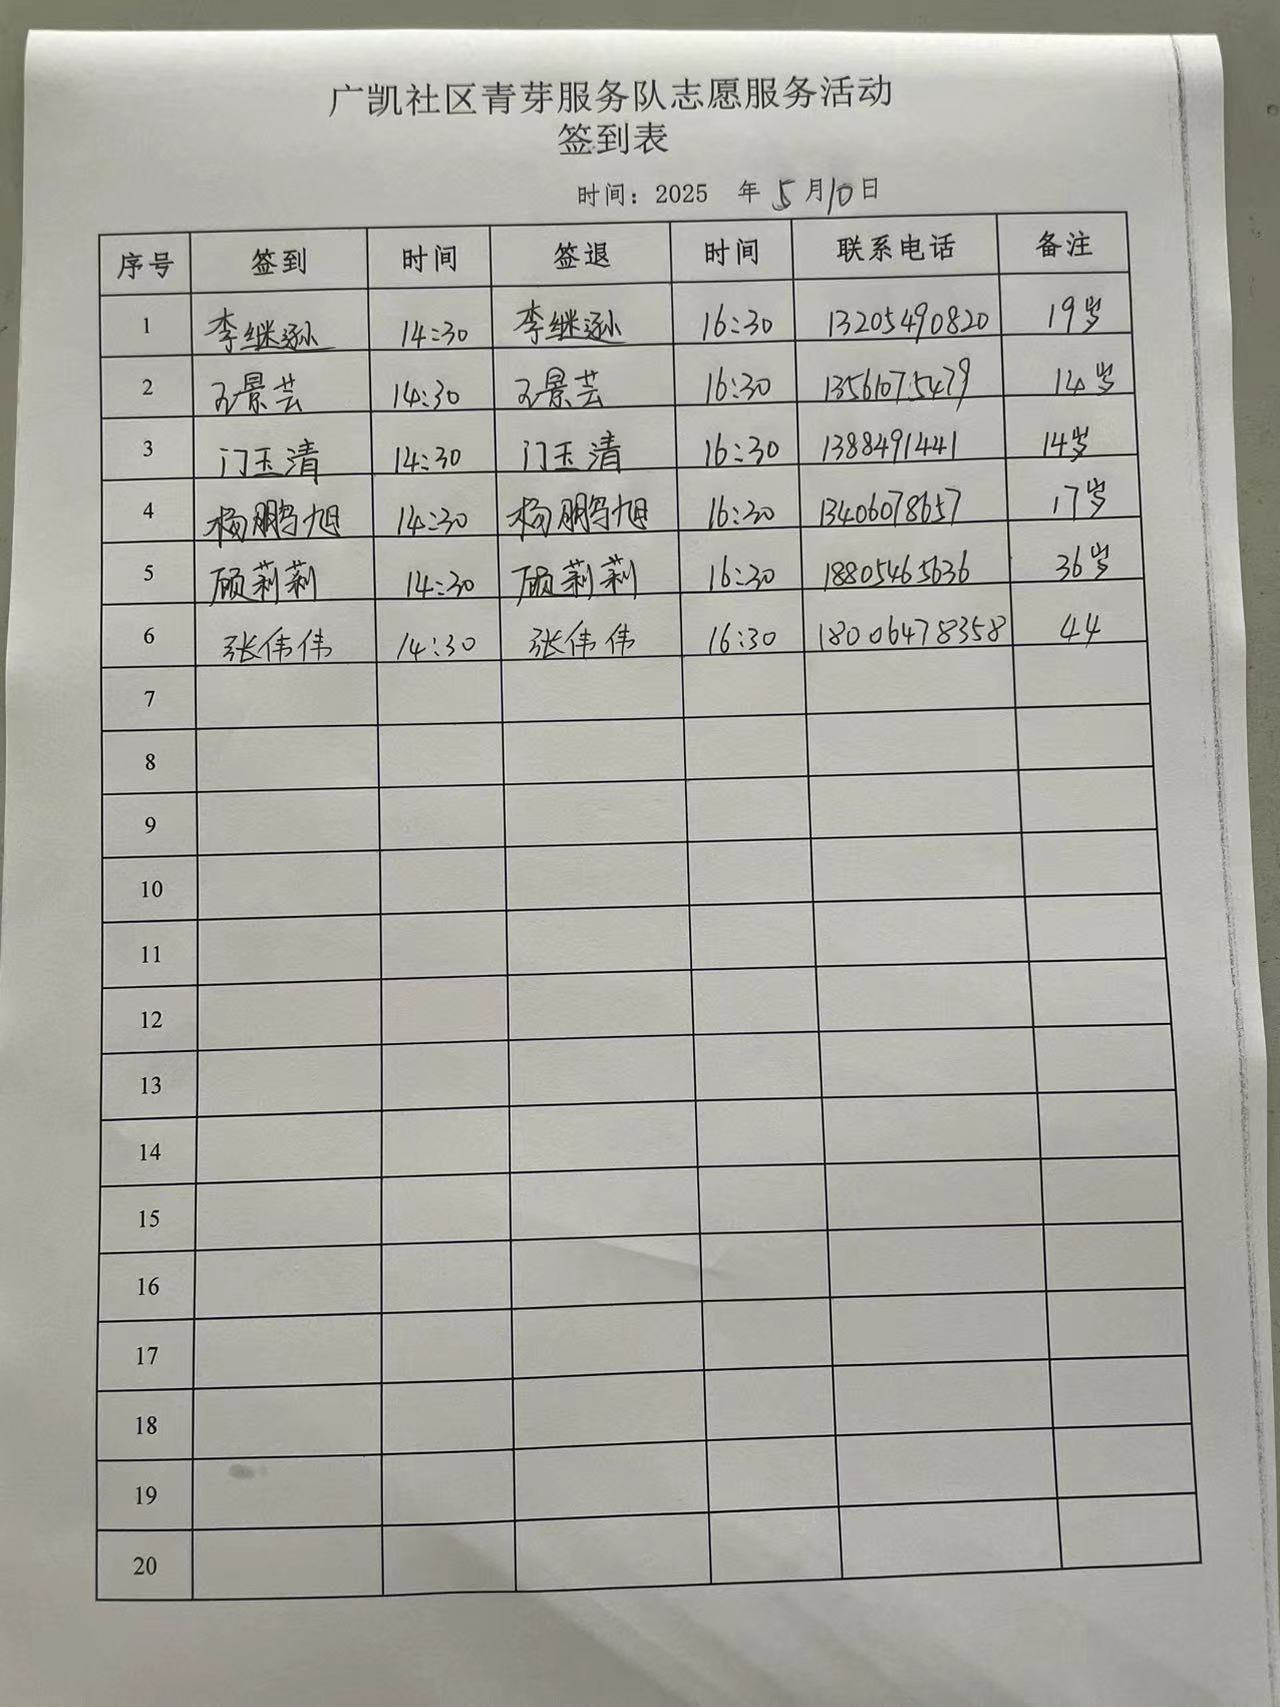 广凯社区青芽服务队志愿服务活动
签到表
时间：2025 年 5 月 10 日
序号 签到 时间 签退 时间 联系电话 备注
1 李继逊 14:30 李继逊 16:30 13205490820 19岁
2 王景芸 14:30 王景芸 16:30 13561075479 14岁
3 门玉清 14:30 门玉清 16:30 1388491441 14岁
4 杨鹏旭 14:30 杨鹏旭 16:30 13406078657 17岁
5 顾莉莉 14:30 顾莉莉 16:30 18805465636 36岁
6 张伟伟 14:30 张伟伟 16:30 18006478358 44
7
8
9
10
11
12
13
14
15
16
17
18
19
20